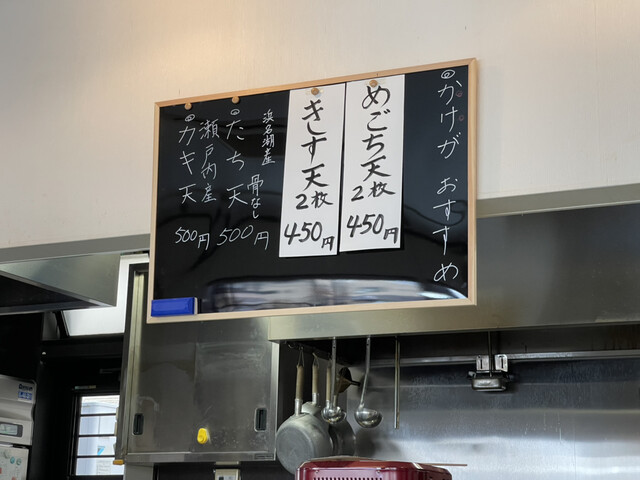 ◎かけが おすすめ
めごち天
2枚
450円
きす天
2枚
450円
浜名湖産
◎たち天 骨なし
500円
瀬戸内産
◎カキ天
500円